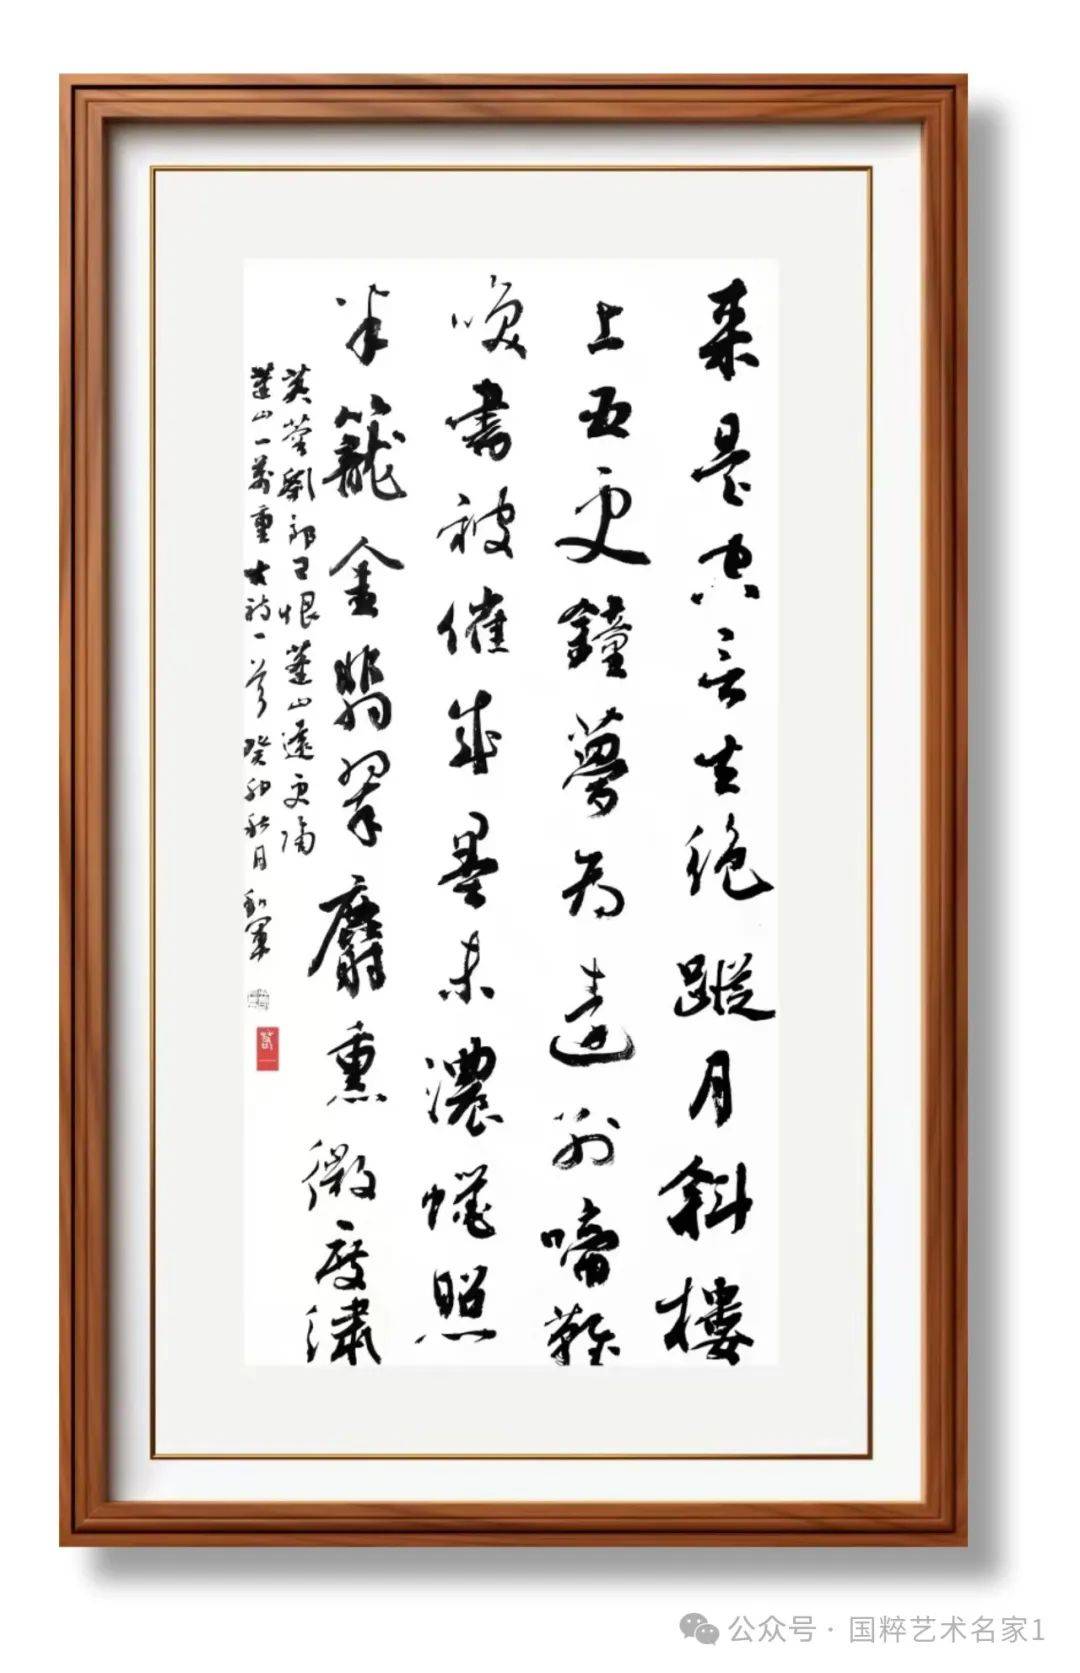 來是空言去絕蹤月斜樓
上五更鐘夢為遠別啼難
喚書被催成墨未濃蠟照
半籠金翡翠麝熏微度繡
芙蓉劉郎已恨蓬山遠更隔
蓬山一萬重古詩一首癸卯秋月軍
公众号·国粹艺术名家1